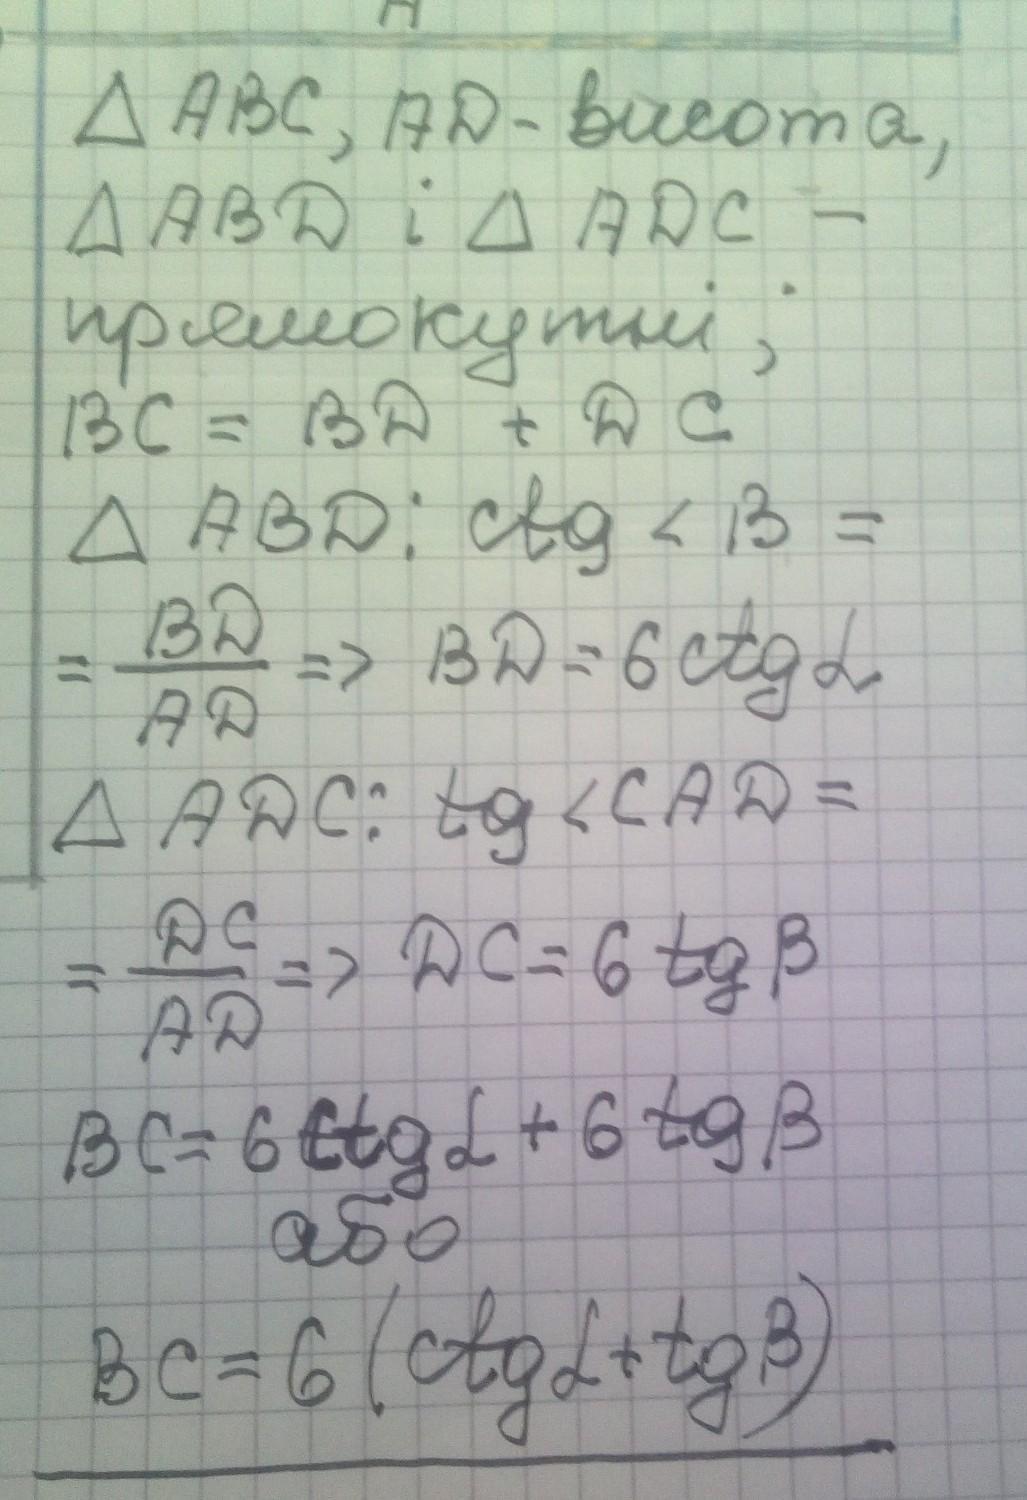 A
△ ABC, AD - висота,
△ ABD і △ ADC -
прямокутні;
BC = BD + DC
△ ABD: ctg < B =
= BD/AD => BD = 6 ctg α
△ ADC: tg < CAD =
= DC/AD => DC = 6 tg β
BC = 6 ctg α + 6 tg β
або
BC = 6 (ctg α + tg β)